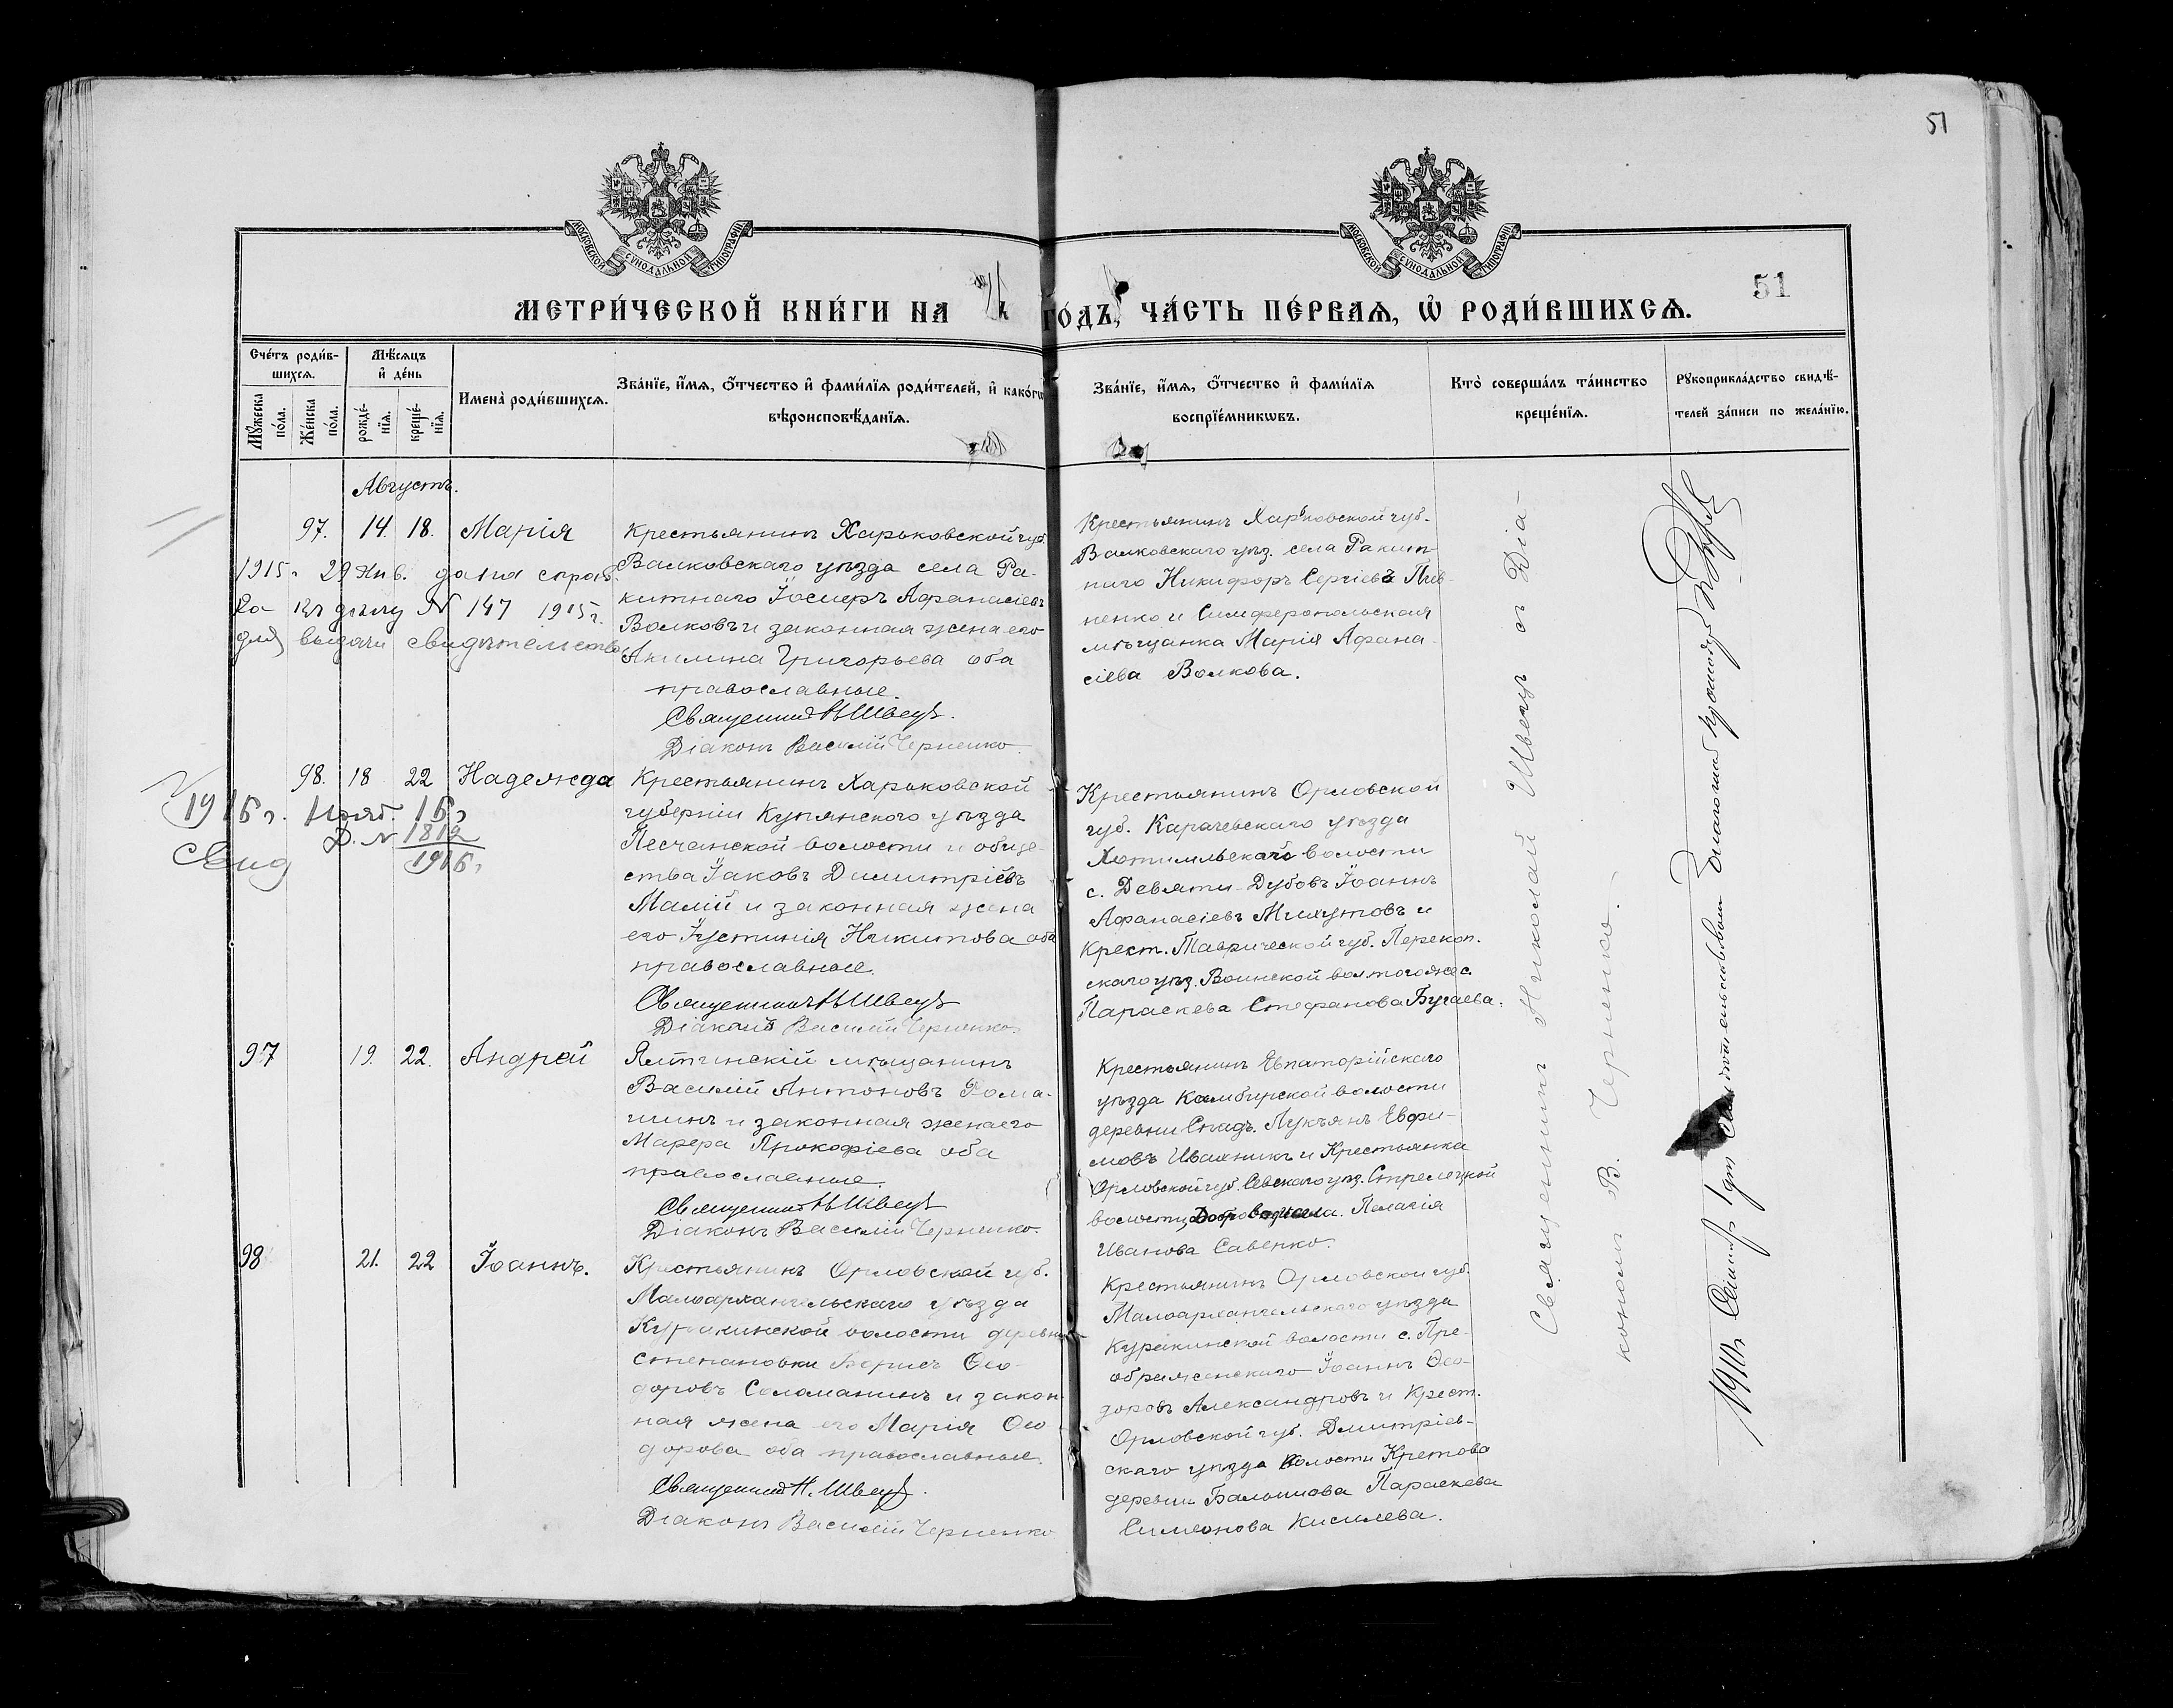 51
МОСКОВСКОЙ СѴНОДАЛЬНОЙ ТИПОГРАФІИ
МОСКОВСКОЙ СѴНОДАЛЬНОЙ ТИПОГРАФІИ
51
МЕТРИ́ЧЕСКОЙ КНИ́ГИ НА ГО́ДЪ, ЧА́СТЬ ПЕ́РВАѦ, Ѡ҆ РОДИ́ВШИХСѦ.
Сче́тъ роди́в-
шихсѧ.
Мꙋ́жеска по́ла.
Же́нска по́ла.
Мѣ́сѧцъ
и҆ де́нь
рожде́-
нїѧ.
креще́-
нїѧ.
Имена̀ роди́вшихсѧ.
Зва́нїе, и҆́мѧ, ѻ҆́тчество и҆ фами́лїѧ роди́телей, и҆ како́гѡ
вѣроисповѣ́данїѧ.
Зва́нїе, и҆́мѧ, ѻ҆́тчество и҆ фами́лїѧ
воспрїе́мникѡвъ.
Кто̀ соверша́лъ та́инство
креще́нїѧ.
Рꙋкоприкла́дство свидѣ́-
телей за́писи по жела́нїю.
Августъ.
97. 14. 18. Марія
Крестьянинъ Харьковской губ.
Валковскаго уѣзда села Ра-
китнаго Іосифъ Афанасіевъ
Волковъ и законная жена его
Акилина Григорьева оба
православные.
Священникъ Н Швецъ.
Діаконъ Василій Черненко.
Крестьянинъ Харьковской губ.
Валковскаго уѣз. села Ракит-
наго Никифоръ Сергіевъ Пив-
ненко и Симферопольская
мѣщанка Марія Афана-
сіева Волкова.
1915 г. 29 Янв. дана справ-
ка къ дѣлу № 147 1915 г.
для выдачи свидѣтельства
98. 18 22 Надежда
Крестьянинъ Харьковской
губерніи Купянского уѣзда
Песчанской волости и обще-
ства Іаковъ Димитріевъ
Малій и законная жена
его Іустинія Никитова оба
православные.
Священникъ Н Швецъ
Діаконъ Василій Черненко
Крестьянинъ Орловской
губ. Карачевскаго уѣзда
Хотимльскаго волости
с. Девяти-Дубовъ Іоаннъ
Афанасіевъ Михутовъ и
Крест. Таврической губ. Перекоп.
скаго уѣз. Воинской вол. того же с.
Параскева Стефанова Бугаева.
1916 г. Нояб. 16 г
Д. № 1812
1916 г.
Свид
97 19. 22. Андрей
Ялтинскій мѣщанинъ
Василій Антоновъ Фома-
шинъ и законная жена его
Марфа Прокофіева оба
православные.
Священникъ Н Швецъ
Діаконъ Василій Черненко.
Крестьянинъ Евпаторійскаго
уѣзда Камбирской волости
деревни Лукъянъ Евфи-
мовъ Ивахникъ и Крестьянка
Орловской губ. Севскаго уѣз. Стрелецкой
волости, Пелагія
Иванова Савенко.
98 21. 22 Іоаннъ.
Крестьянинъ Орловской губ.
Малоархангельскаго уѣзда
Куракинской волости деревни
Степановки Борисъ Ѳео-
доровъ Соломанинъ и закон-
ная жена его Марія Ѳео-
дорова оба православные.
Священникъ Н. Швецъ.
Діаконъ Василій Черненко
Крестьянинъ Орловской губ.
Малоархангельскаго уѣзда
Куракинской волости с. Пре-
ображенскаго Іоаннъ Ѳео-
доровъ Александровъ и Крест.
Орловской губ. Дмитріев-
скаго уѣзда волости Кретова
деревни Параскева
Симеонова Кисилева.
Священникъ Николай Швецъ съ Діа-
кономъ В. Черненко.
1910 г. свидѣтельствовалъ Благочинный